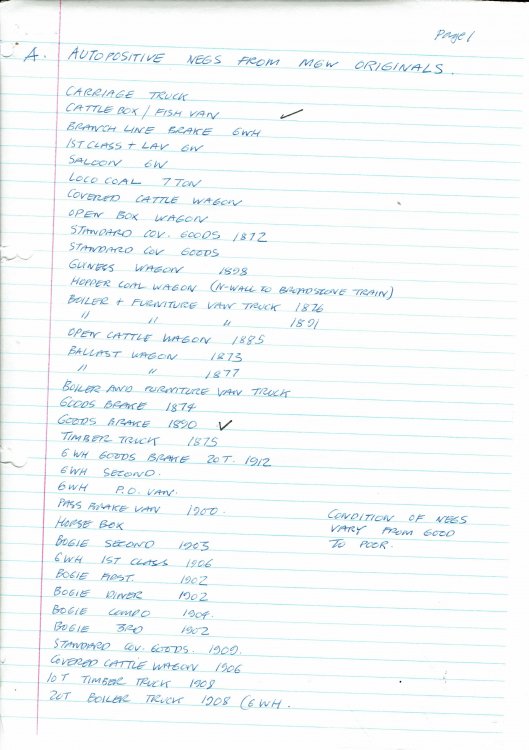 Page 1
A. AUTOPOSITIVE NEGS FROM MGW ORIGINALS.
CARRIAGE TRUCK
CATTLE BOX / FISH VAN ✓
BRANCH LINE BRAKE 6WH
1ST CLASS + LAV 6W
SALOON 6W
LOCO COAL 7 TON
COVERED CATTLE WAGON
OPEN BOX WAGON
STANDARD COV. GOODS 1872
STANDARD COV GOODS
GUINESS WAGON 1898
HOPPER COAL WAGON (N-WALL TO BROADSTONE TRAIN)
BOILER + FURNITURE VAN TRUCK 1876
" " " 1891
OPEN CATTLE WAGON 1885
BALLAST WAGON 1873
" " 1877
BOILER AND FURNITURE VAN TRUCK
GOODS BRAKE 1874
GOODS BRAKE 1890 ✓
TIMBER TRUCK 1875
6WH GOODS BRAKE 20T. 1912
6WH SECOND.
6WH P.O. VAN.
PASS BRAKE VAN 1900.
HORSE BOX
BOGIE SECOND 1903
6WH 1ST CLASS 1906
BOGIE FIRST 1902
BOGIE DINER 1902
BOGIE COMPO 1904.
BOGIE 3RD 1902
STANDARD COV. GOODS. 1909.
COVERED CATTLE WAGON 1906
10T TIMBER TRUCK 1908
20T BOILER TRUCK 1908 (6WH.
CONDITION OF NEGS
VARY FROM GOOD
TO POOR.